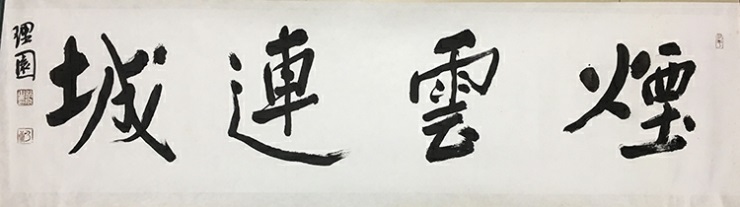 煙雲連城
理園